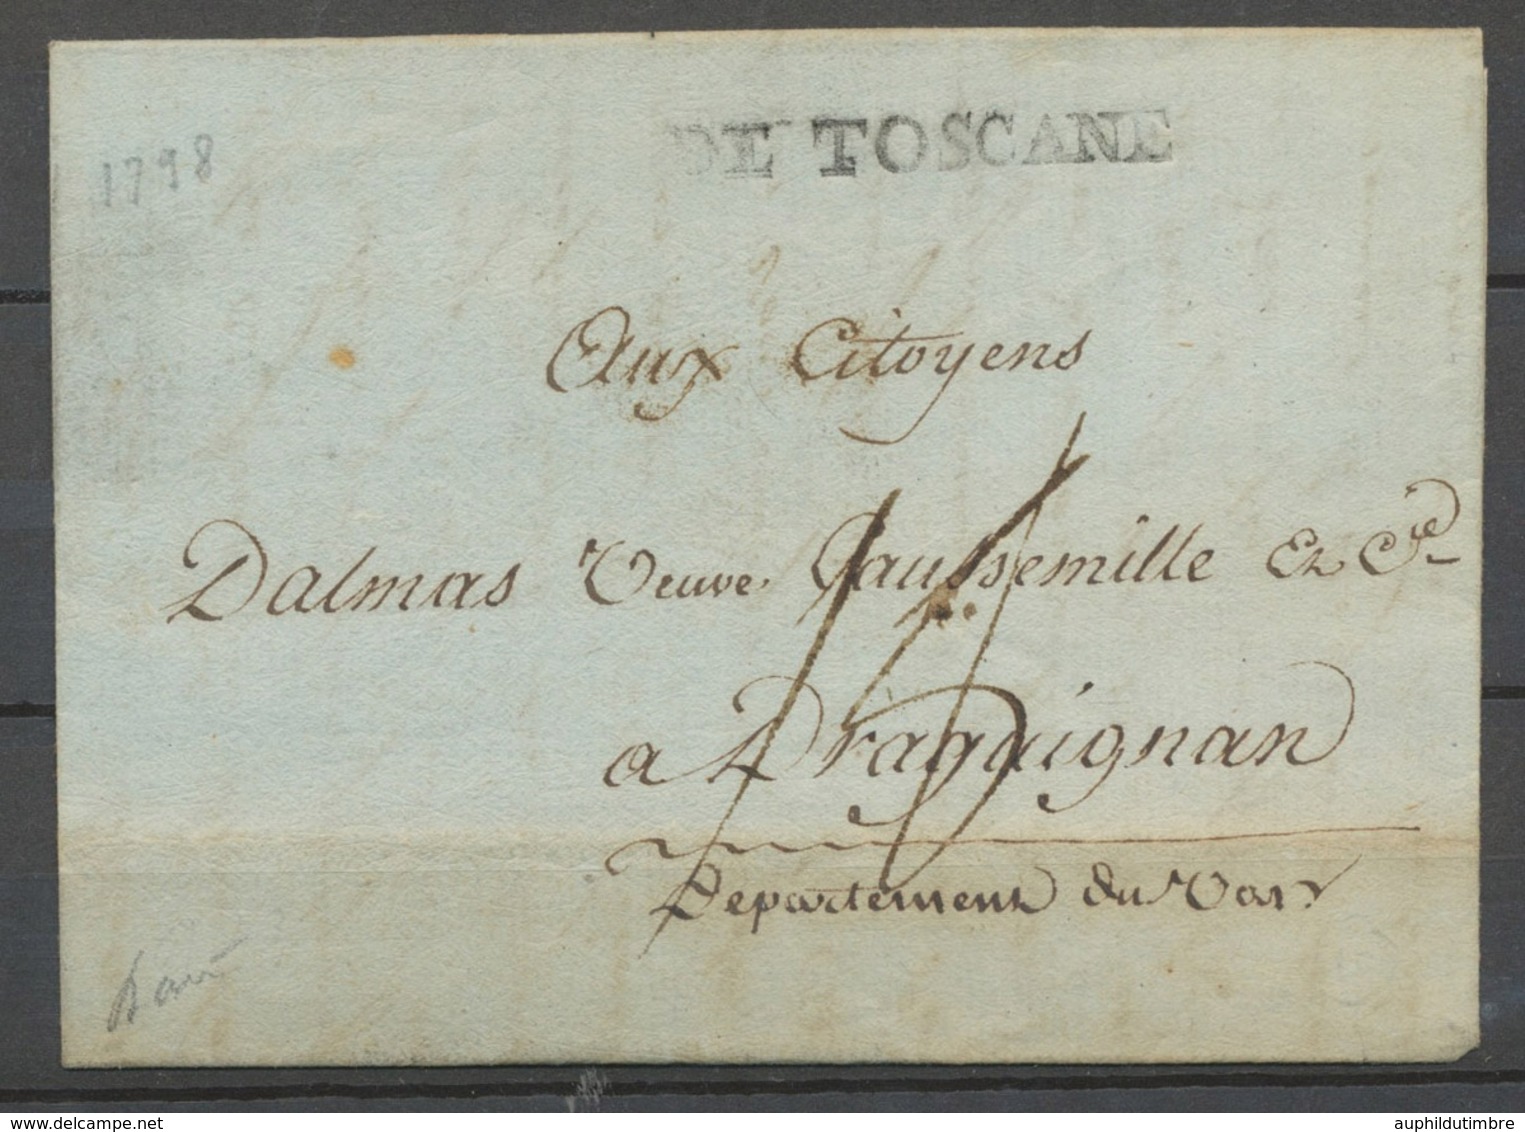 DE TOSCANE
1798
Aux Citoyens
Dalmas Veuve Gaussemille Et Cie
a Draguignan
Departement du Var
delcampe.net
auphildutimbre